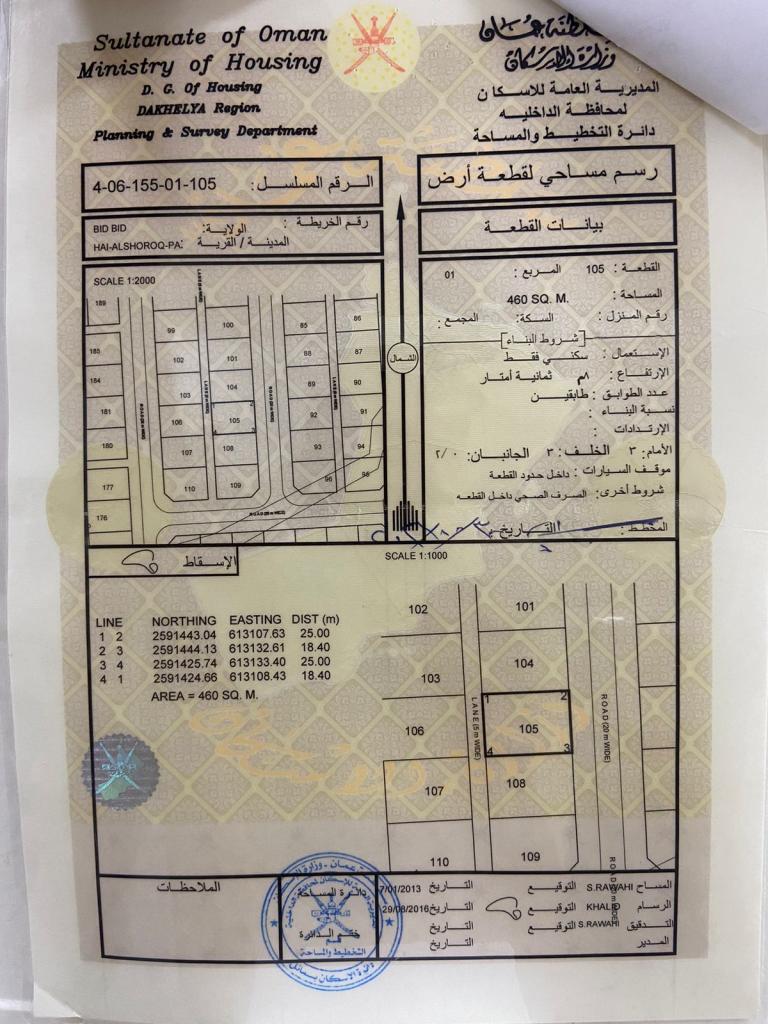 Sultanate of Oman
Ministry of Housing
D. G. Of Housing
DAKHELYA Region
Planning & Survey Department
وزارة الإسكان
المديرية العامة للاسكان
لمحافظة الداخليه
دائرة التخطيط والمساحة
الرقم المسلسل: 4-06-155-01-105
رسم مساحي لقطعة أرض
رقم الخريطة :
الولاية: BID BID
المدينة / القرية : HAI-ALSHOROQ-PA
بيانات القطعة
SCALE 1:2000
189
185
184
181
180
177
176
99
102
103
106
107
110
100
101
104
105
108
109
85
88
89
92
93
96
86
87
90
91
94
95
ROAD(20 m WIDE)
الشمال
القطعة : 105 المربع : 01
المساحة : 460 SQ. M.
رقم المنزل : السكة: المجمع :
شروط البناء
الإستعمال : سكني فقط
الإرتفاع : ٨م ثمانية أمتار
عدد الطوابق : طابقين
نسبة البناء :
الإرتدادات :
الأمام: ٣ الخلف: ٣ الجانبان: ٢/٠
موقف السيارات : داخل حدود القطعة
شروط أخرى: الصرف الصحي داخل القطعه
المخطط : التاريخ :
الإسقاط
SCALE 1:1000
LINE NORTHING EASTING DIST (m)
1 2 2591443.04 613107.63 25.00
2 3 2591444.13 613132.61 18.40
3 4 2591425.74 613133.40 25.00
4 1 2591424.66 613108.43 18.40
AREA = 460 SQ. M.
102
101
103
104
106
1 2
105
4 3
107
108
110
109
LANE(5 m WIDE)
ROAD(20 m WIDE)
الملاحظات
المساح S.RAWAHI التوقيع التاريخ 7/01/2013
الرسام KHALID التوقيع التاريخ 29/08/2016
التدقيق S.RAWAHI التوقيع التاريخ
المدير التاريخ
دائرة المساحة
ختم الدائرة
التخطيط والمساحة